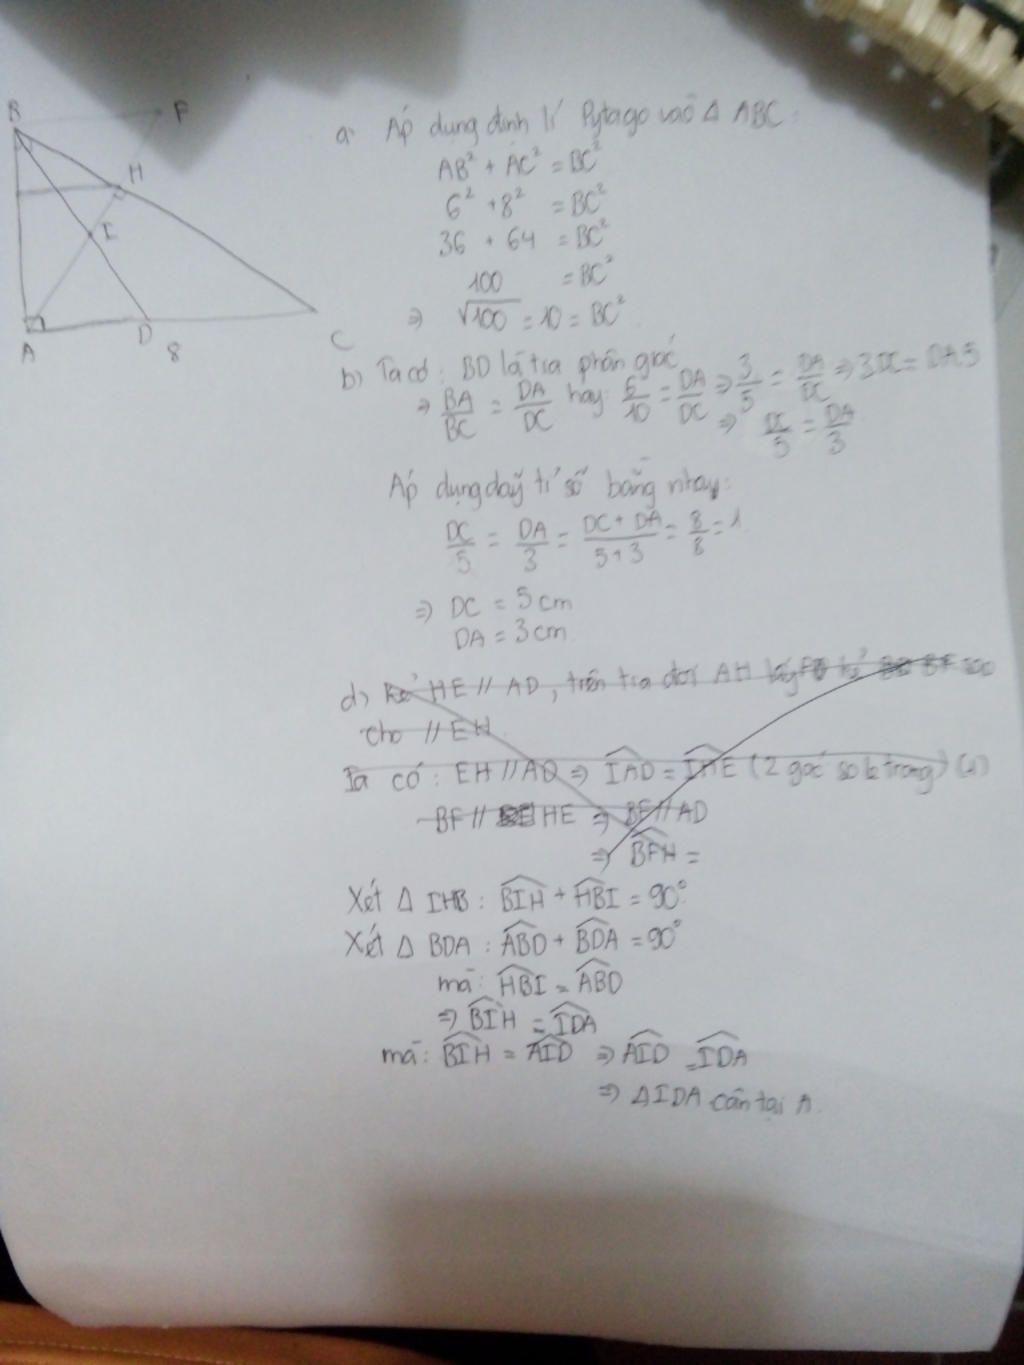 B
F
H
I
A
D
8
C
a. Áp dụng định lí Pytago vào Δ ABC:
AB² + AC² = BC²
6² + 8² = BC²
36 + 64 = BC²
100 = BC²
⇒ √100 = 10 = BC²
b) Ta có: BD là tia phân giác
⇒ BA/BC = DA/DC hay: 6/10 = DA/DC ⇒ 3/5 = DA/DC ⇒ 3DC = DA5
⇒ DC/5 = DA/3
Áp dụng dãy tỉ số bằng nhau:
DC/5 = DA/3 = DC + DA/5+3 = 8/8 = 1
⇒ DC = 5 cm
DA = 3 cm
d) Kẻ HE // AD, trên tia đối AH lấy kẻ BF sao
cho // EH
Ta có: EH // AD ⇒ IAD = IHE (2 góc so le trong) (1)
BF // HE ⇒ BF // AD
⇒ BFH =
Xét Δ IHB: BIH + HBI = 90°
Xét Δ BDA: ABD + BDA = 90°
mà: HBI = ABD
⇒ BIH = IDA
mà: BIH = AID ⇒ AID = IDA
⇒ ΔIDA cân tại A.